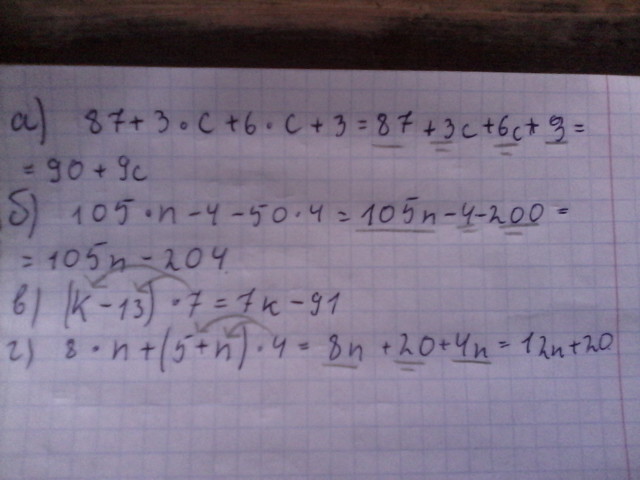 а) 87 + 3 · c + 6 · c + 3 = 87 + 3c + 6c + 3 =
= 90 + 9c
б) 105 · n - 4 - 50 · 4 = 105n - 4 - 200 =
= 105n - 204
в) (к - 13) · 7 = 7к - 91
г) 8 · n + (5 + n) · 4 = 8n + 20 + 4n = 12n + 20